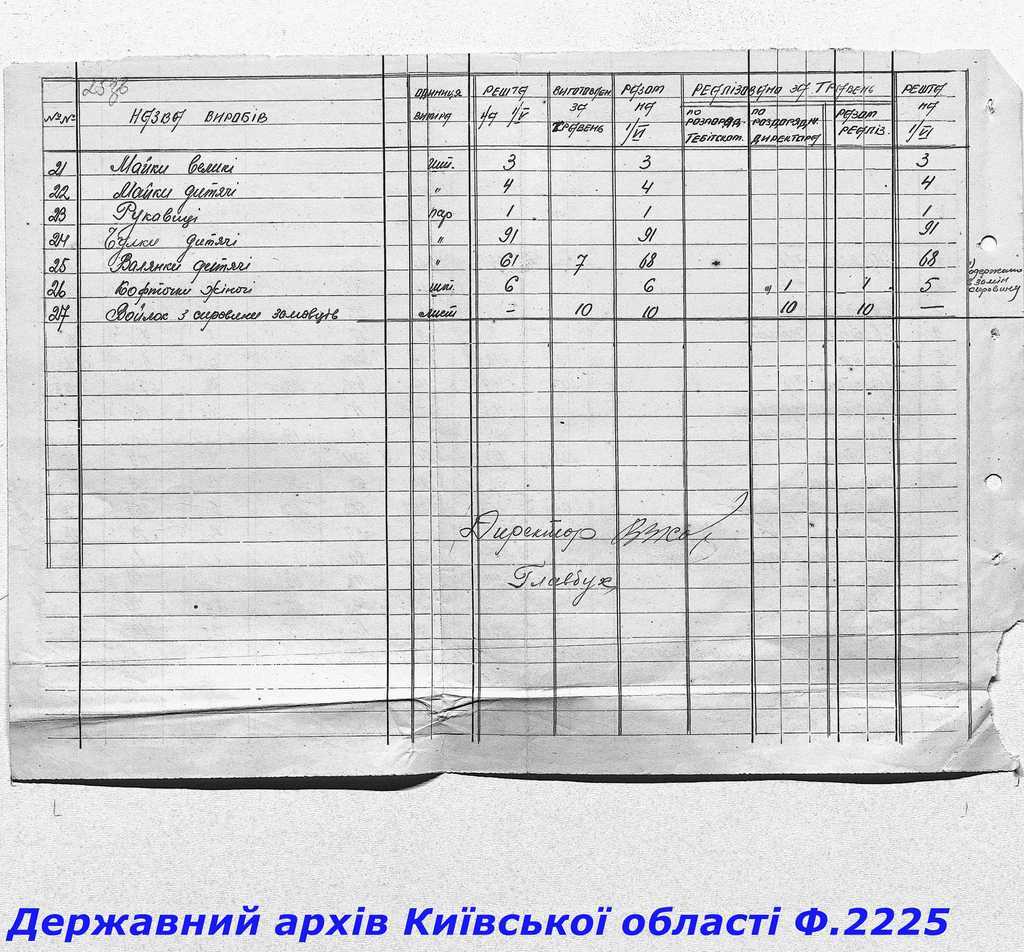 25зв
№№ НАЗВА ВИРОБІВ ОДИНИЦЯ ВИМІРА РЕШТА НА 1/V ВИГОТОВЛЕН. ЗА ТРАВЕНЬ РАЗОМ НА 1/VI РЕАЛІЗОВАНО ЗА ТРАВЕНЬ ПО РОЗПОРЯД. ТЕБІТСКОМ. ПО РОЗПОРЯДЖ. ДИРЕКТОРА РАЗОМ РЕАЛІЗ. РЕШТА НА 1/VI
21 Майки великі шт. 3 3 3
22 Майки дитячі " 4 4 4
23 Рукавиці пар 1 1 1
24 Чулки дитячі " 91 91 91
25 Валянки дитячі " 61 7 68 68
26 Кофточки жіночі шт. 6 6 1 1 5
27 Войлок з сировини замовців лист – 10 10 10 10 —
одержано
взамін
сировину
Директор
Главбух
Державний архів Київської області Ф.2225